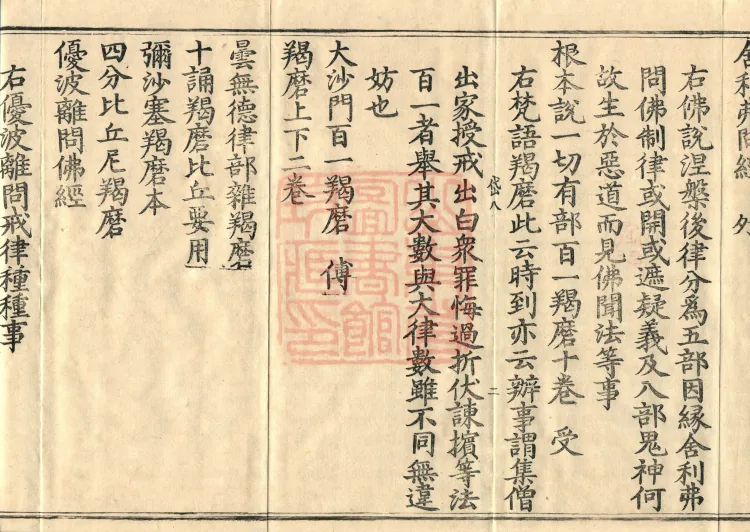 舍利弗問經 外
右佛說涅槃後律分爲五部因縁舍利弗
問佛制律或開或遮疑義及八部鬼神何
故生於惡道而見佛聞法等事
根本說一切有部百一羯磨十卷 受
右梵語羯磨此云時到亦云辦事謂集僧
岱八
二
出家授戒出白衆罪悔過折伏諫擯等法
百一者舉其大數與大律數雖不同無違
妨也
大沙門百一羯磨 傅
羯磨上下二卷
曇無德律部雜羯磨
十誦羯磨比丘要用
彌沙塞羯磨本
四分比丘尼羯磨
優波離問佛經
右優波離問戒律種種事